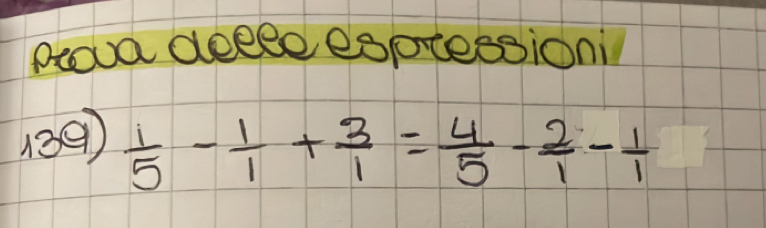 Prova delle espressioni
139) 1/5 - 1/1 + 3/1 = 4/5 - 2/1 - 1/1